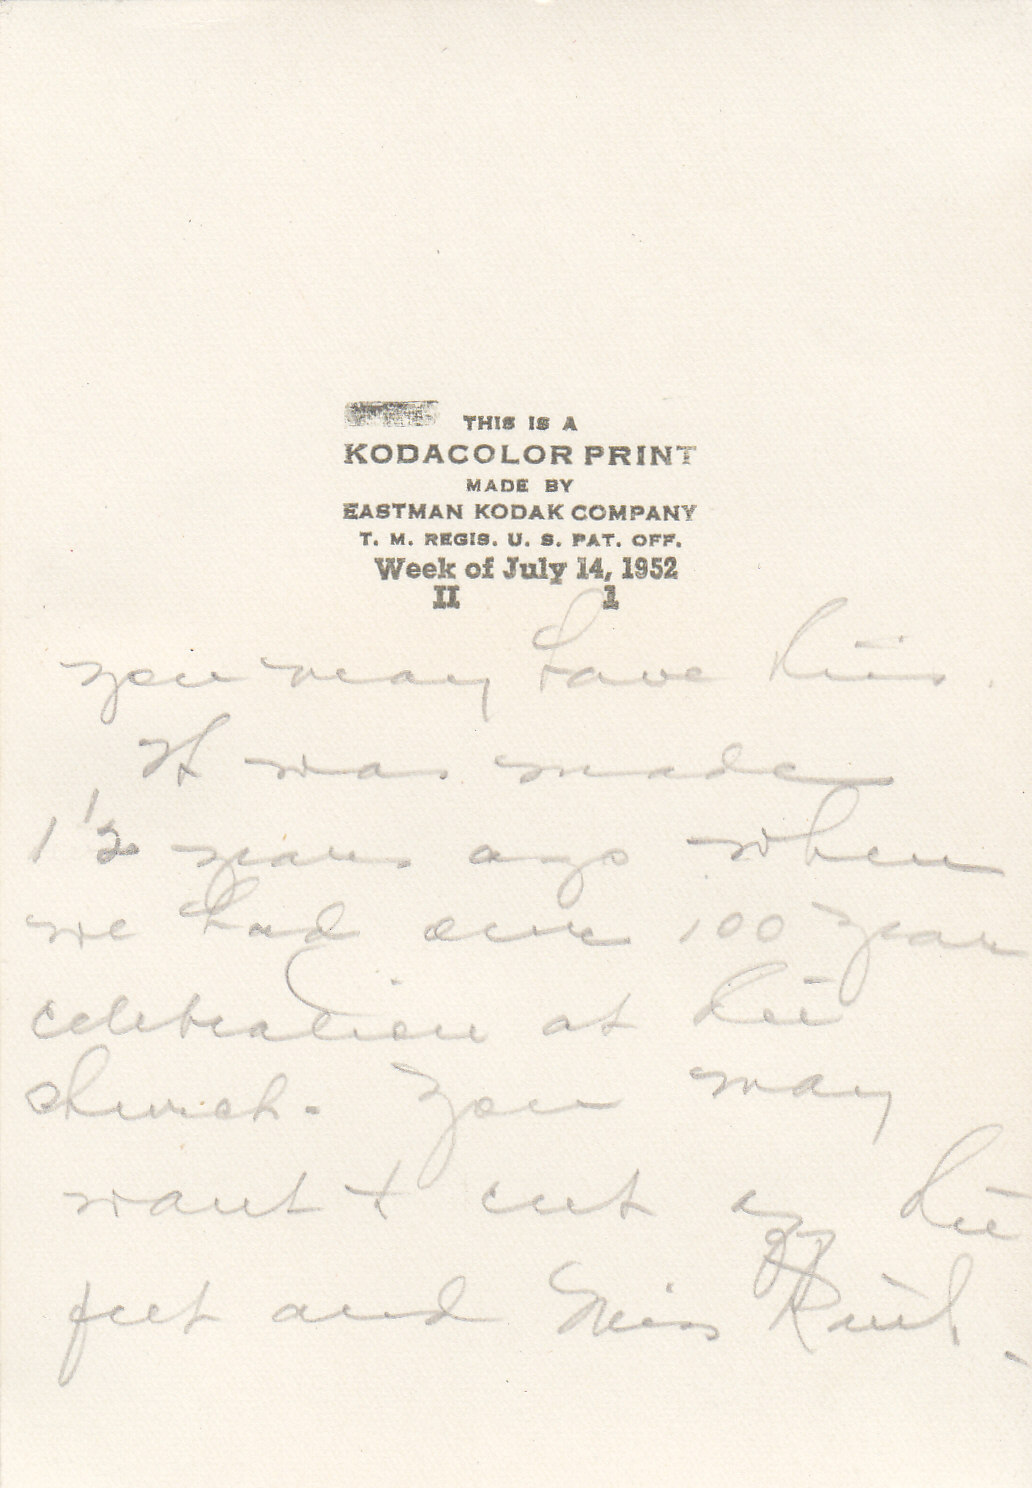 THIS IS A
KODACOLOR PRINT
MADE BY
EASTMAN KODAK COMPANY
T. M. REGIS. U. S. PAT. OFF.
Week of July 14, 1952
II 1
you may have this.
It was made
1 1/2 years ago when
we had our 100 year
celebration at the
church. You may
want to cut off the
feet and Miss